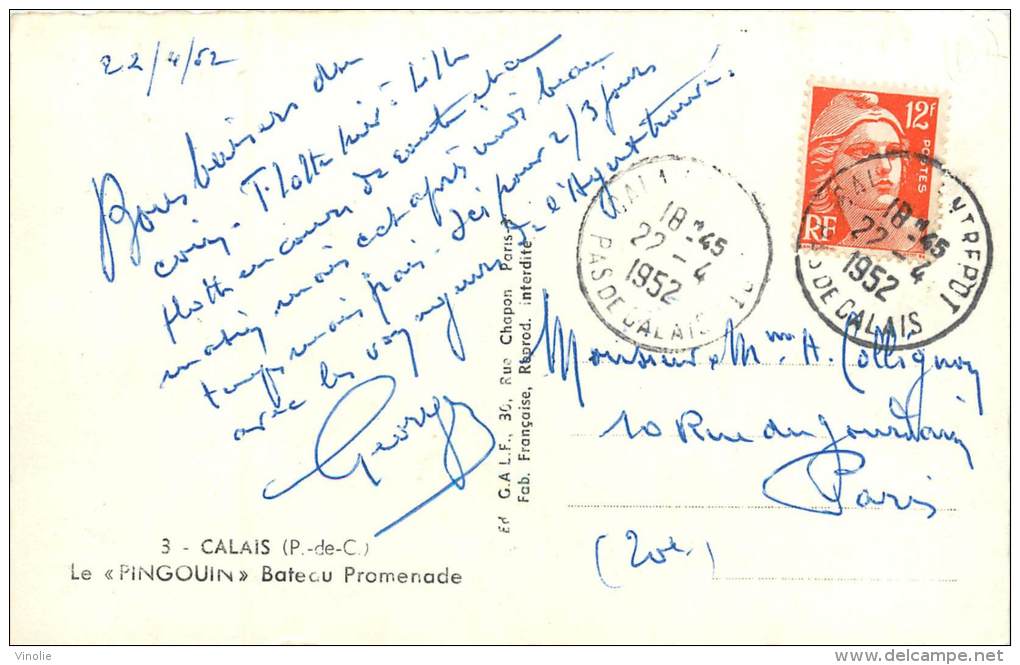 22/4/52
Bons baisers du
coin. Flotte hier - Lille
flotte en cours de route et ce
matin mais cet après midi beau
temps mais frais. Ici pour 2/3 jours
avec les voyageurs
Georges
3 - CALAIS (P.-de-C.)
Le « PINGOUIN » Bateau Promenade
Ed G.A.L.F., 36, Rue Chapon Paris
Fab. Française, Reprod. interdite
12F
POSTES
RF
18-45
22-4
1952
PAS DE CALAIS
18-45
22-4
1952
ENTREPOT
DE CALAIS
Monsieur & Mme A. Collignon
10 Rue du Jourdain
Paris
(20e)
Vinolie
delcampe.net